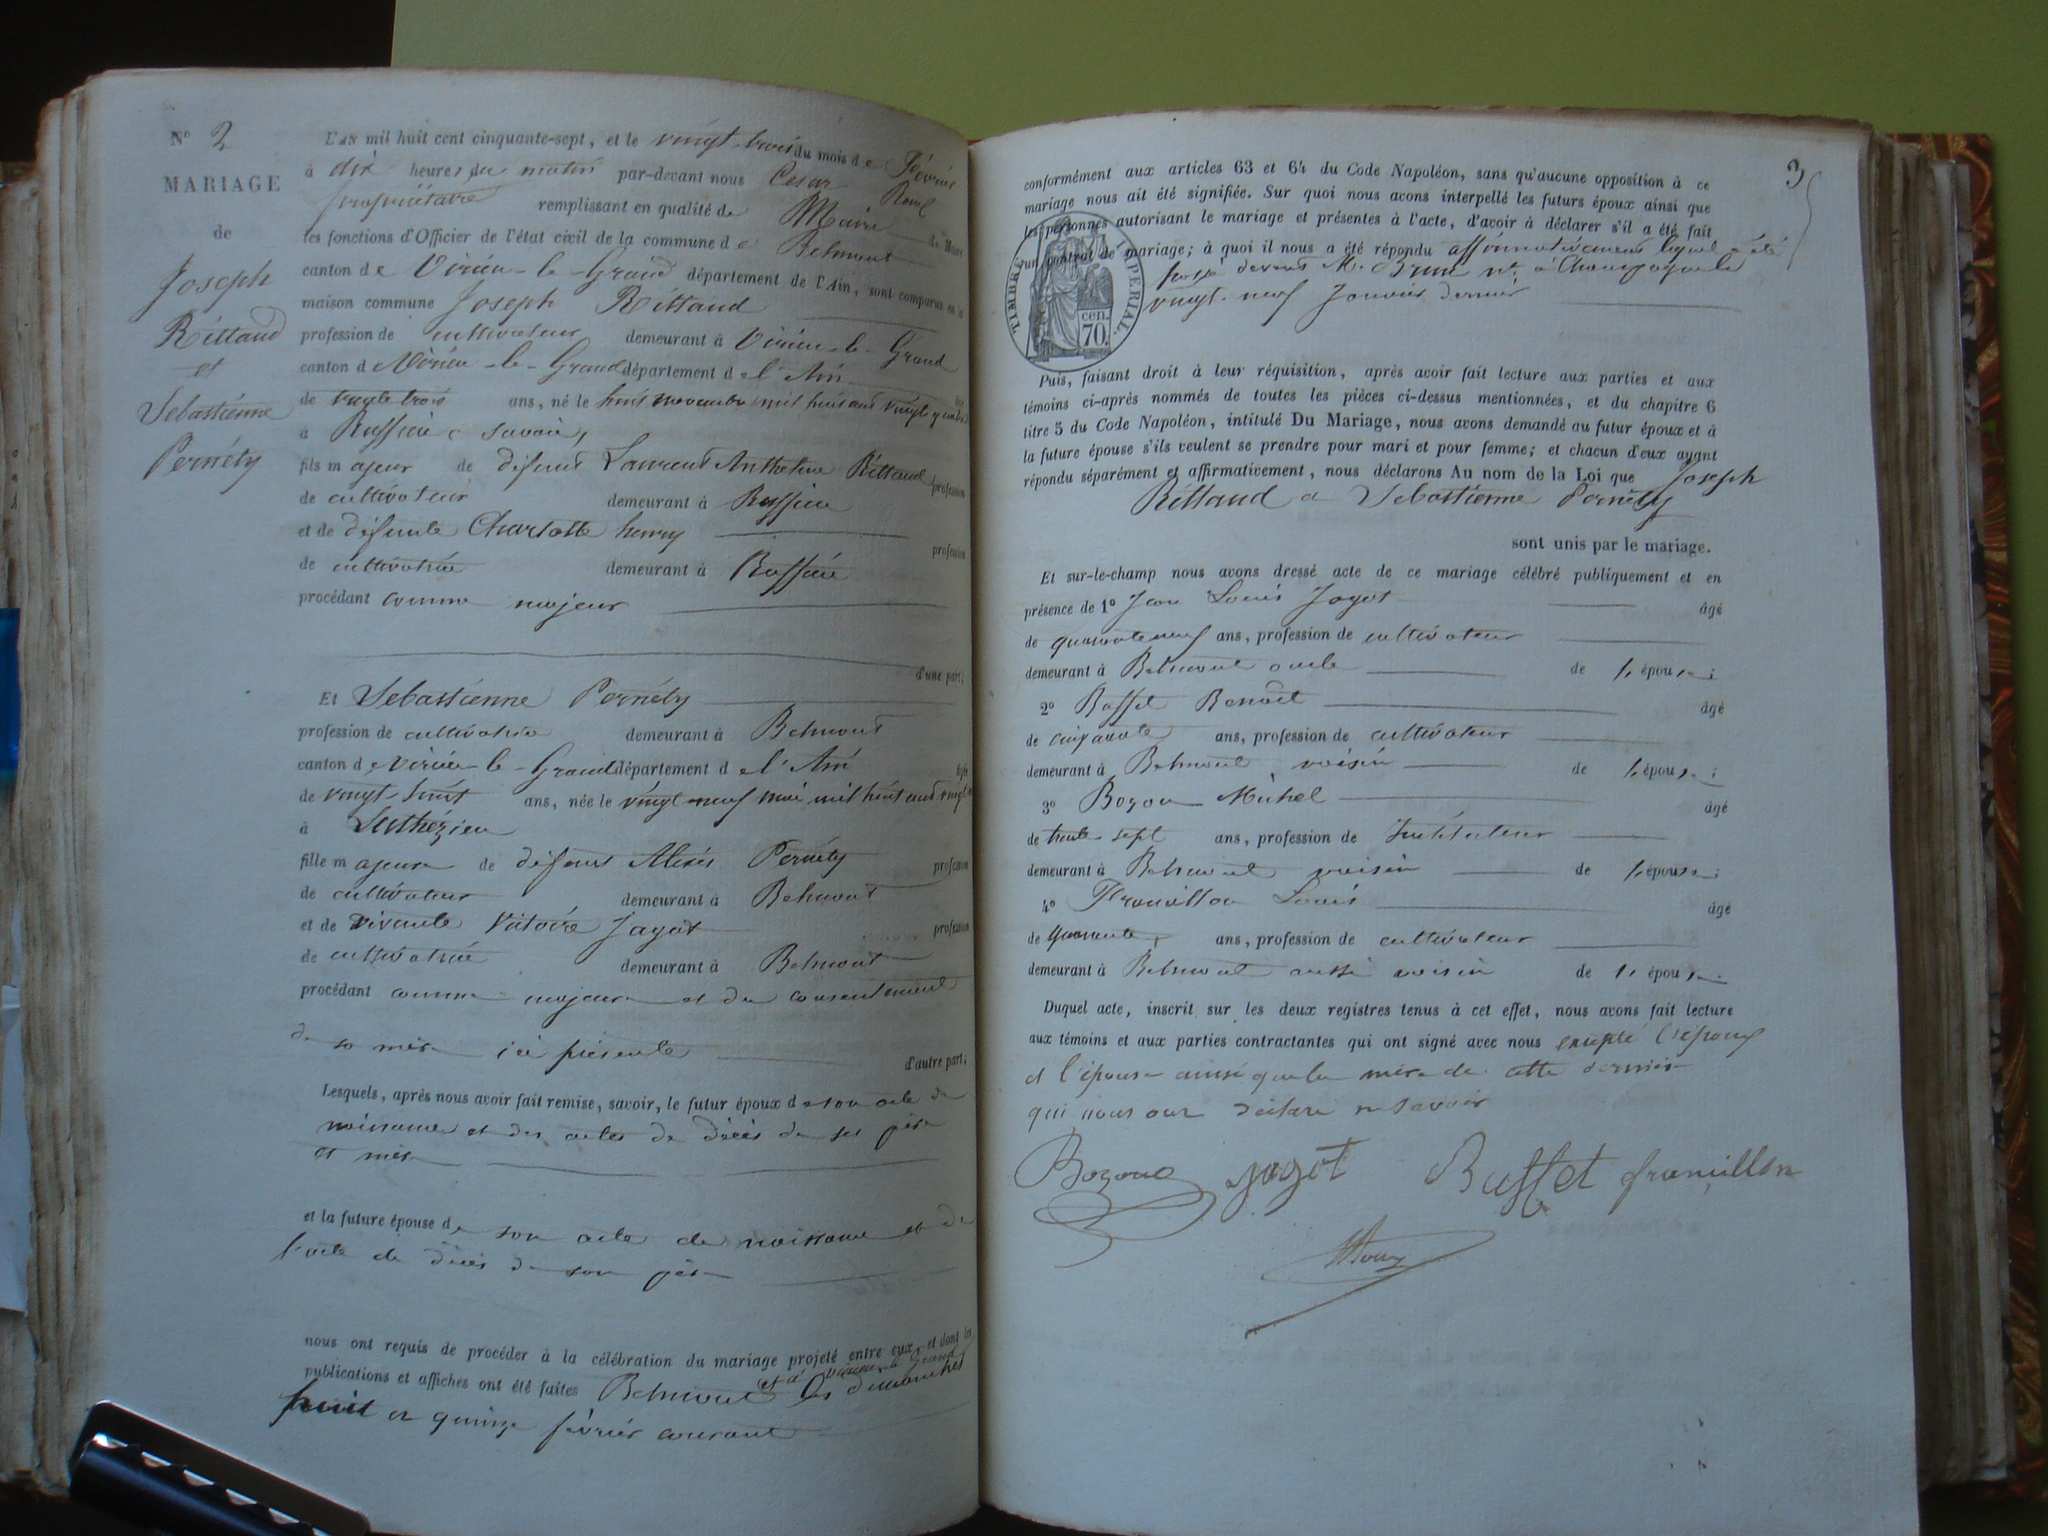 N° 2
MARIAGE
de
Joseph
Rittaud
et
Sebastienne
Pernéty
L'AN mil huit cent cinquante-sept, et le vingt-trois du mois de Février
à dix heures du matin par-devant nous Cesar
propriétaire remplissant en qualité de Maire
les fonctions d'Officier de l'état civil de la commune de Belmont
canton de Virieu-le-Grand département de l'Ain, sont comparus en la
maison commune Joseph Rittaud
profession de cultivateur demeurant à Virieu-le-Grand
canton de Virieu-le-Grand département de l'Ain
de vingt trois ans, né le huit novembre mil huit cent vingt
à Ruffieu Savoie,
fils majeur de défunt Laurent Anthelme Rittaud profession
de cultivateur demeurant à Ruffieu
et de défunte Charlotte henry profession
de cultivatrice demeurant à Ruffieu
procédant comme majeur
d'une part;
Et Sebastienne Pernéty
profession de cultivatrice demeurant à Belmont
canton de Virieu-le-Grand département de l'Ain
de vingt-huit ans, née le vingt-neuf mai mil huit cent vingt
à Luthézieu
fille majeure de défunt Alexis Pernéty profession
de cultivateur demeurant à Belmont
et de vivante Victoire Jagot profession
de cultivatrice demeurant à Belmont
procédant comme majeure et du consentement
de sa mère ici présente d'autre part;
Lesquels, après nous avoir fait remise, savoir, le futur époux de son acte de
naissance et des actes de décès de ses père
et mère
et la future épouse de son acte de naissance et de
l'acte de décès de son père
nous ont requis de procéder à la célébration du mariage projeté entre eux, et dont les
et à Virieu-le-Grand
publications et affiches ont été faites Belmont les dimanches
huit et quinze février courant
3
conformément aux articles 63 et 64 du Code Napoléon, sans qu'aucune opposition à ce
mariage nous ait été signifiée. Sur quoi nous avons interpellé les futurs époux ainsi que
les personnes autorisant le mariage et présentes à l'acte, d'avoir à déclarer s'il a été fait
un contrat de mariage; à quoi il nous a été répondu affirmativement lequel a été
passé devant Me Brun nre à Champagne le
vingt-neuf Janvier dernier
TIMBRE IMPERIAL.
cen.
70.
Puis, faisant droit à leur réquisition, après avoir fait lecture aux parties et aux
témoins ci-après nommés de toutes les pièces ci-dessus mentionnées, et du chapitre 6
titre 5 du Code Napoléon, intitulé Du Mariage, nous avons demandé au futur époux et à
la future épouse s'ils veulent se prendre pour mari et pour femme; et chacun d'eux ayant
répondu séparément et affirmativement, nous déclarons Au nom de la Loi que Joseph
Rittaud et Sebastienne Pernéty
sont unis par le mariage.
Et sur-le-champ nous avons dressé acte de ce mariage célébré publiquement et en
présence de 1° Jean Louis Jagot âgé
de quarante neuf ans, profession de cultivateur
demeurant à Belmont oncle de l'épouse;
2° Buffet Benoit âgé
de cinquante ans, profession de cultivateur
demeurant à Belmont voisin de l'épouse;
3° Bozon Michel âgé
de trente-sept ans, profession de Instituteur
demeurant à Belmont voisin de l'épouse;
4° Framillon Louis âgé
de quarante, ans, profession de cultivateur
demeurant à Belmont aussi voisin de l'épouse
Duquel acte, inscrit sur les deux registres tenus à cet effet, nous avons fait lecture
aux témoins et aux parties contractantes qui ont signé avec nous excepté l'époux
et l'épouse ainsi que la mère de cette dernière
qui nous ont déclaré ne savoir
Bozon Jagot Buffet framillon